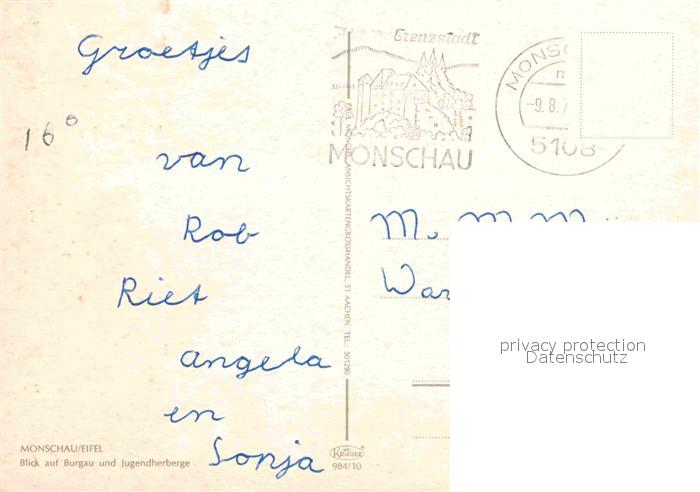 Groetjes
16°
van
Rob
Riet
Angela
en
Sonja
MONSCHAU/EIFEL
Blick auf Burgau und Jugendherberge
51 AACHEN, TEL.: 501290
KRÜGER
984/10
Grenzstadt
MONSCHAU
-9.8.7
5108
M. M. M
War
privacy protection
Datenschutz